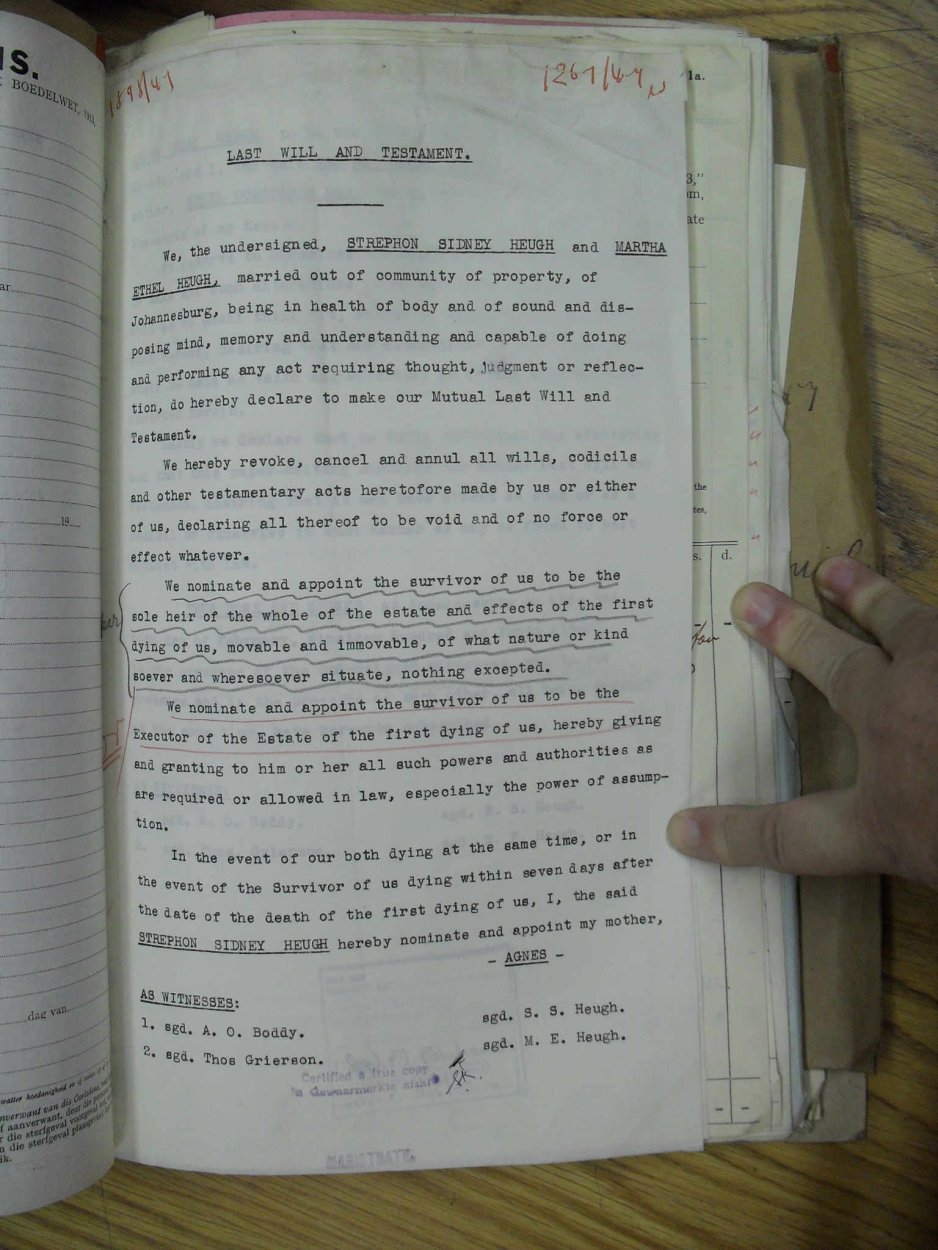 IS.
BOEDELWET, 1913.
1898/47
1267/47
la.
3,"
om,
ate
LAST WILL AND TESTAMENT.
We, the undersigned, STREPHON SIDNEY HEUGH and MARTHA
ETHEL HEUGH, married out of community of property, of
Johannesburg, being in health of body and of sound and dis-
posing mind, memory and understanding and capable of doing
and performing any act requiring thought, judgment or reflec-
tion, do hereby declare to make our Mutual Last Will and
Testament.
We hereby revoke, cancel and annul all wills, codicils
and other testamentary acts heretofore made by us or either
of us, declaring all thereof to be void and of no force or
effect whatever.
We nominate and appoint the survivor of us to be the
sole heir of the whole of the estate and effects of the first
dying of us, movable and immovable, of what nature or kind
soever and wheresoever situate, nothing excepted.
We nominate and appoint the survivor of us to be the
Executor of the Estate of the first dying of us, hereby giving
and granting to him or her all such powers and authorities as
are required or allowed in law, especially the power of assump-
tion.
In the event of our both dying at the same time, or in
the event of the Survivor of us dying within seven days after
the date of the death of the first dying of us, I, the said
STREPHON SIDNEY HEUGH hereby nominate and appoint my mother,
- AGNES -
AS WITNESSES:
1. sgd. A. O. Boddy.
2. sgd. Thos Grierson.
sgd. S. S. Heugh.
sgd. M. E. Heugh.
Certified a true copy
'n Gewaarmerkte afskrif
MAGISTRATE.
ar
19
dag van
the
tes,
s. d.